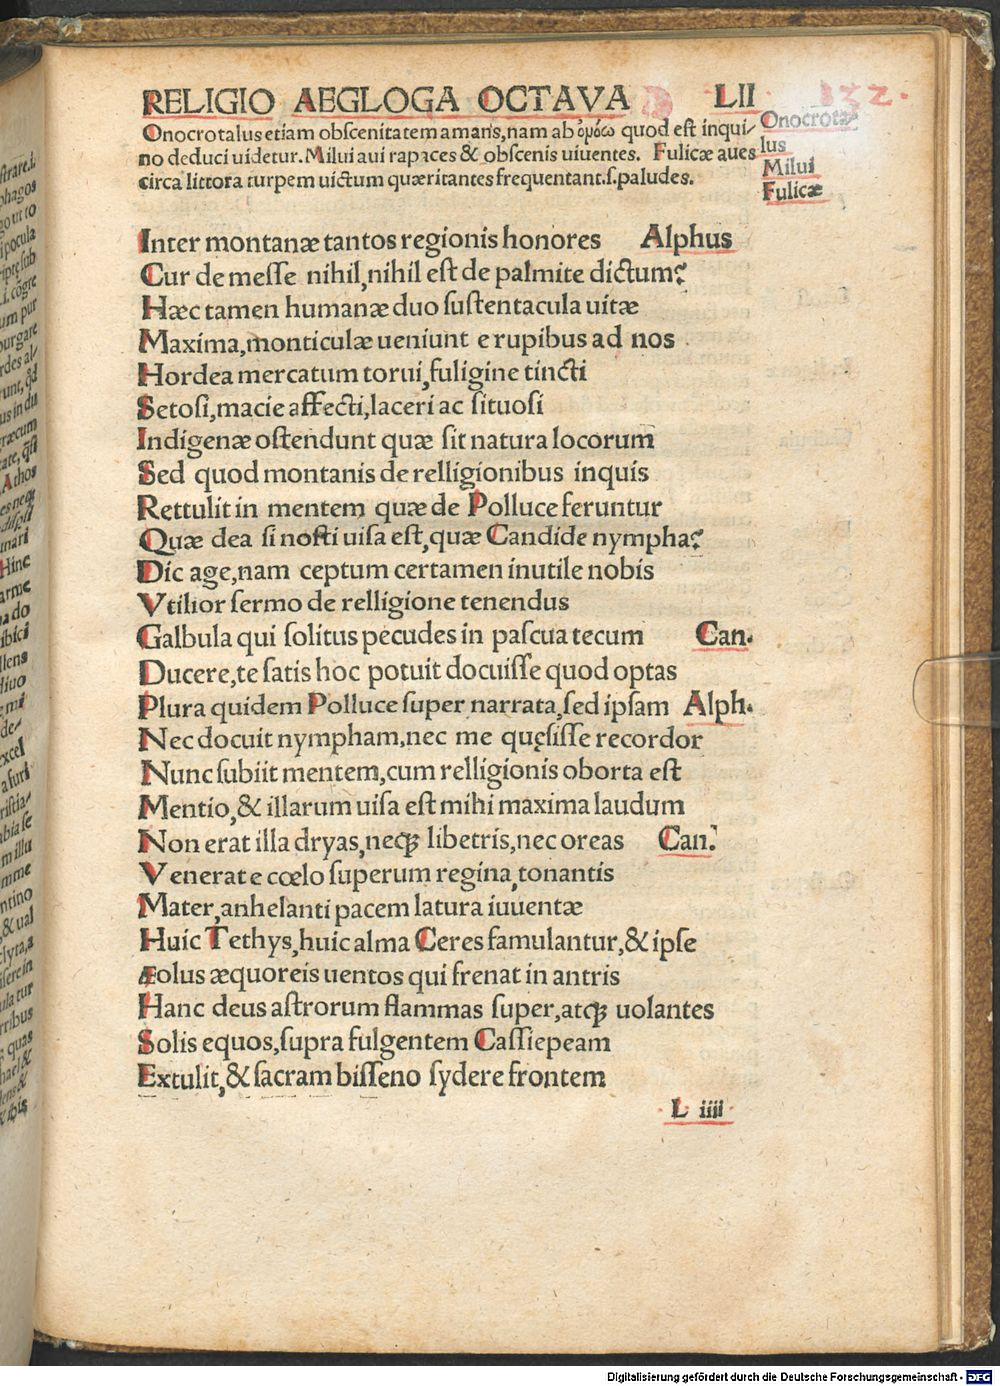 RELIGIO AEGLOGA OCTAVA LII 132.
Onocrotalus etiam obscenitatem amans, nam ab quod est inqui-
no deduci uidetur. Milui aui rapaces & obscenis uiuentes. Fulicæ aues
circa littora turpem uictum quæritantes frequentant .s. paludes.
Onocrota-
lus
Milui
Fulicæ
Inter montanæ tantos regionis honores Alphus
Cur de messe nihil, nihil est de palmite dictum?
Hæc tamen humanæ duo sustentacula uitæ
Maxima, monticulæ ueniunt e rupibus ad nos
Hordea mercatum torui, fuligine tincti
Setosi, macie affecti, laceri ac situosi
Indigenæ ostendunt quæ sit natura locorum
Sed quod montanis de relligionibus inquis
Rettulit in mentem quæ de Polluce feruntur
Quæ dea si nosti uisa est, quæ Candide nympha?
Dic age, nam ceptum certamen inutile nobis
Vtilior sermo de relligione tenendus
Galbula qui solitus pecudes in pascua tecum Can.
Ducere, te satis hoc potuit docuisse quod optas
Plura quidem Polluce super narrata, sed ipsam Alph.
Nec docuit nympham, nec me quęsisse recordor
Nunc subiit mentem, cum relligionis oborta est
Mentio, & illarum uisa est mihi maxima laudum
Non erat illa dryas, neqꝫ libetris, nec oreas Can.
Venerat e cœlo superum regina, tonantis
Mater, anhelanti pacem latura iuuentæ
Huic Tethys, huic alma Ceres famulantur, & ipse
Æolus æquoreis uentos qui frenat in antris
Hanc deus astrorum flammas super, atqꝫ uolantes
Solis equos, supra fulgentem Cassiepeam
Extulit, & sacram bisseno sydere frontem
L iiii
Digitalisierung gefördert durch die Deutsche Forschungsgemeinschaft - DFG